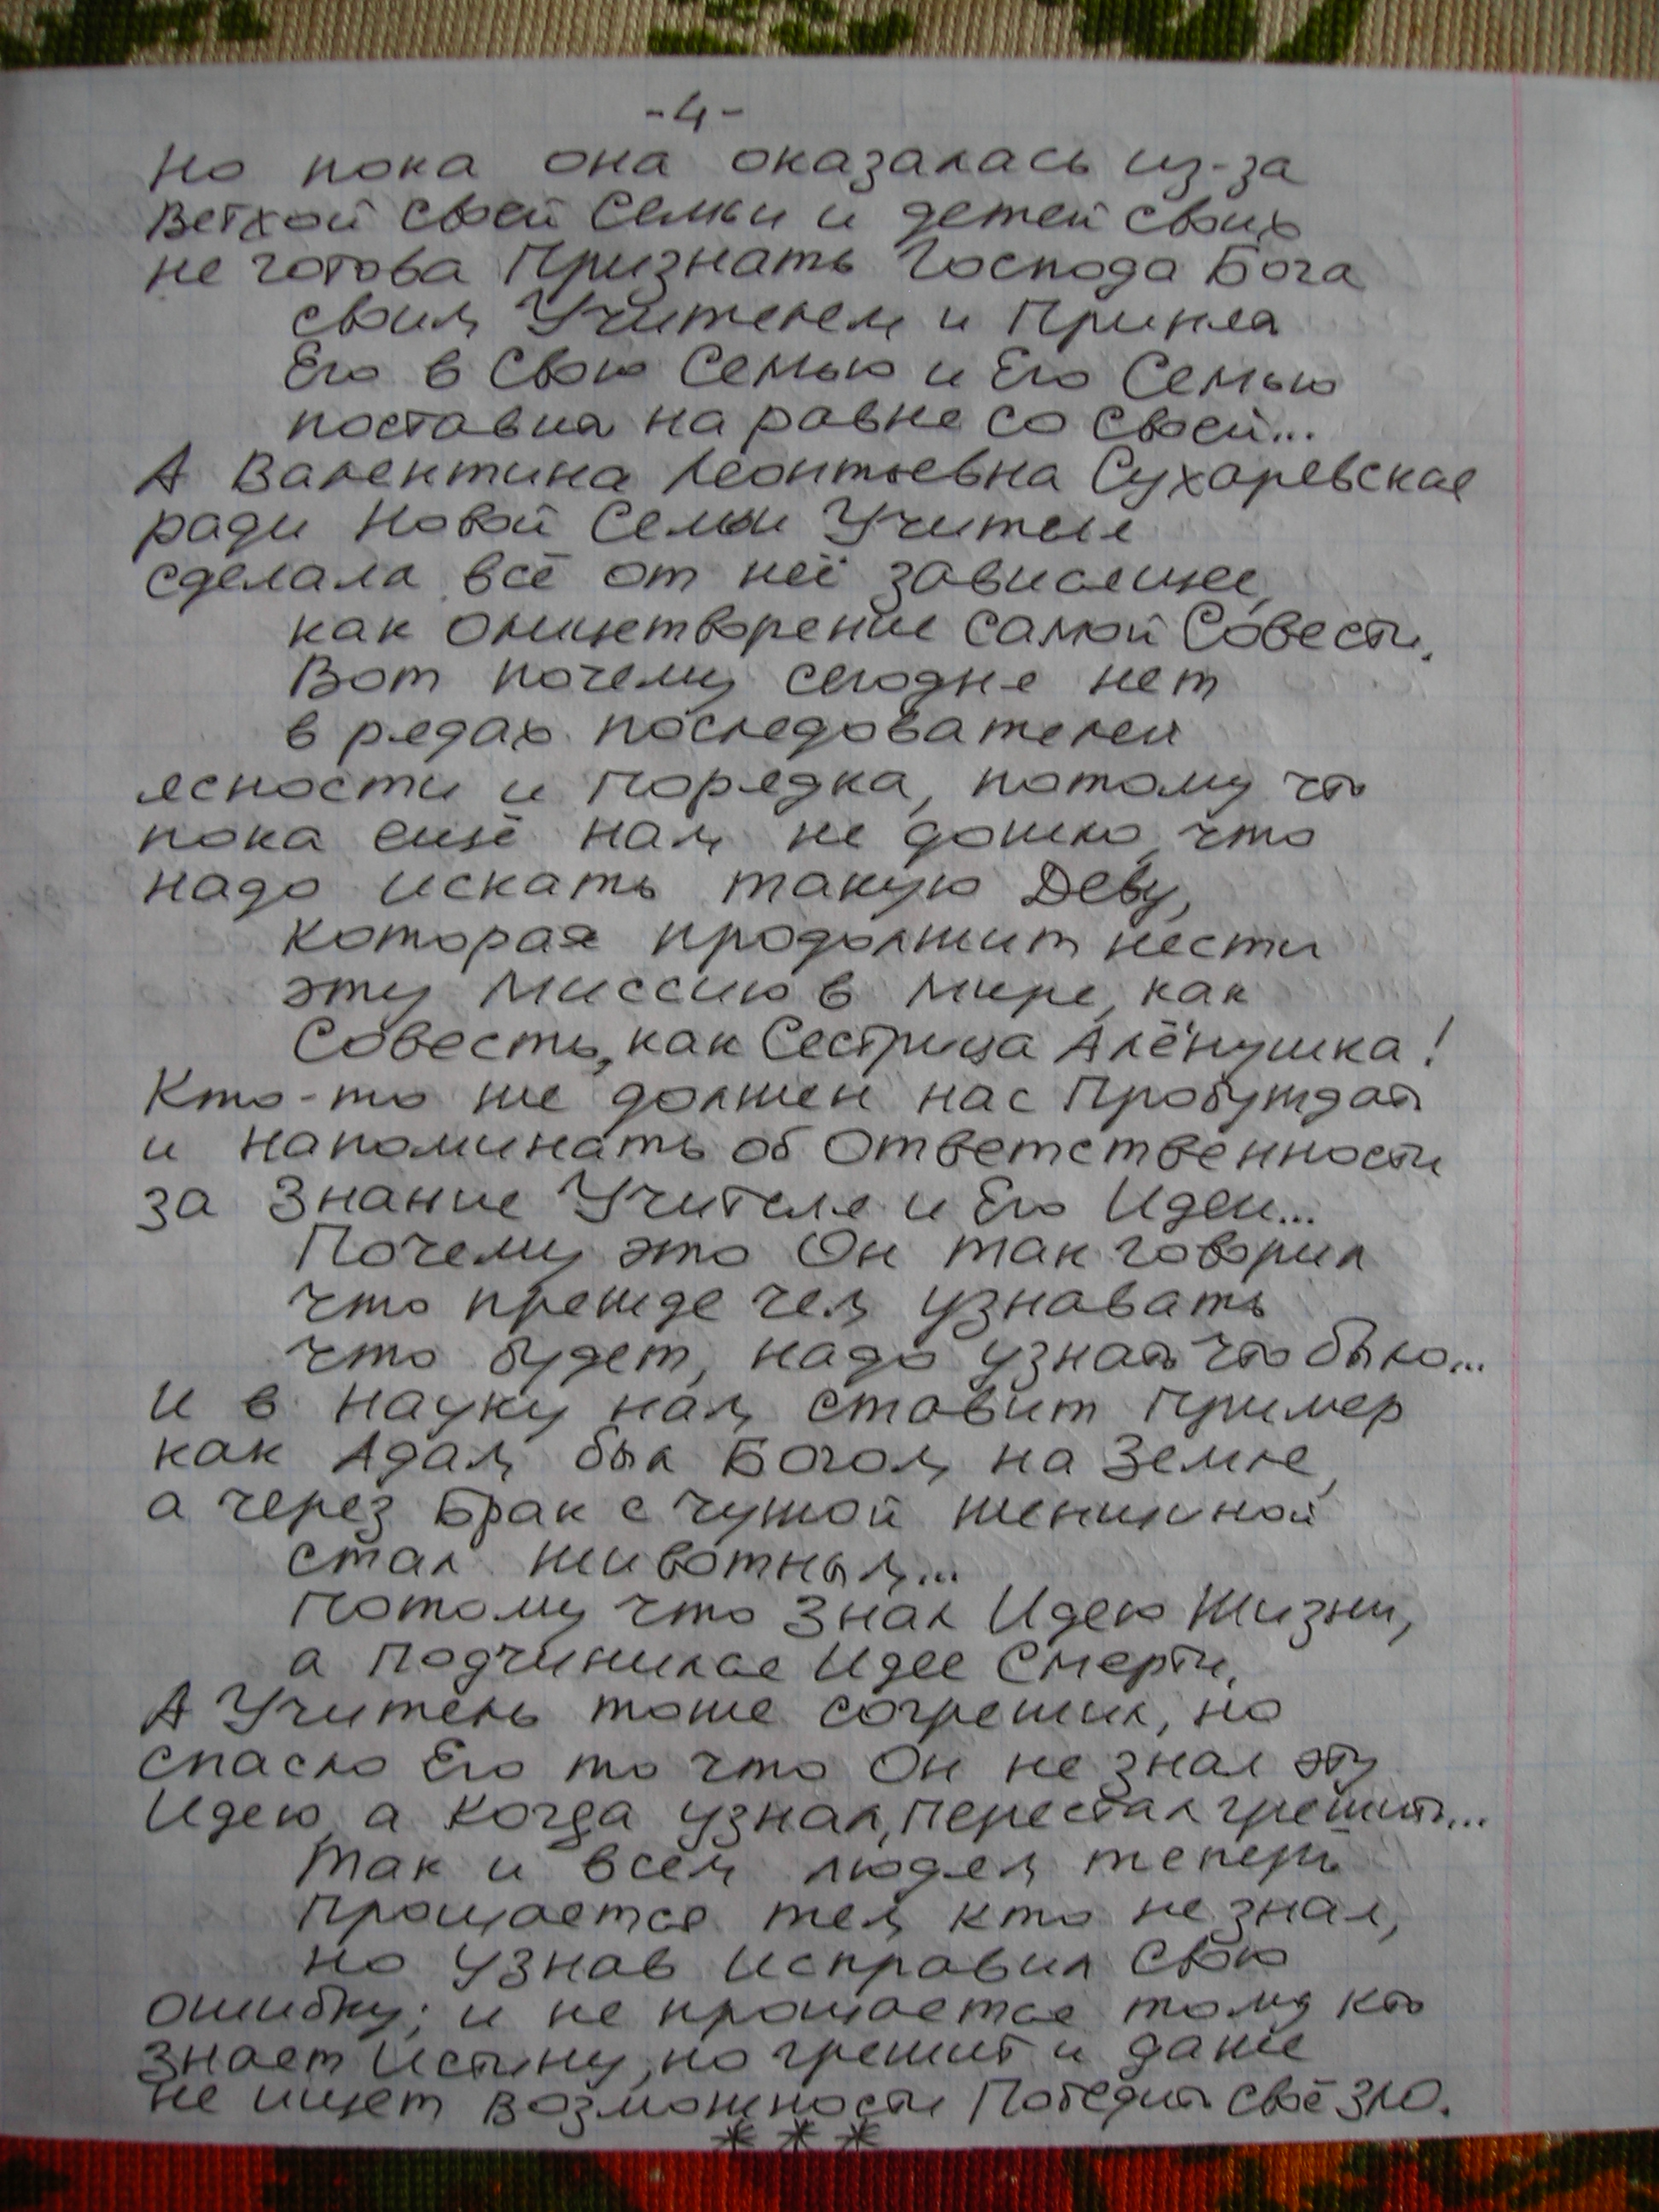 -4-
Но пока она оказалась из-за
Ветхой своей Семьи и детей своих
не готова Признать Господа Бога
своим Учителем и Приняла
Его в Свою Семью и Его Семью
поставила на равне со своей...
А Валентина Леонтьевна Сухаревская
ради Новой Семьи Учителя
сделала всё от неё зависящее,
как олицетворение самой Совести.
Вот почему сегодня нет
в рядах последователей
ясности и Порядка, потому что
пока ещё нам не дошло, что
надо искать такую Деву,
которая продолжит нести
эту Миссию в Мире, как
Совесть, как Сестрица Алёнушка!
Кто-то же должен нас Пробуждать
и напоминать об Ответственности
за Знание Учителя и Его Идеи...
Почему это Он так говорил
что прежде чем узнавать
что будет, надо узнать что было...
И в науку нам ставит Пример
как Адам был Богом на Земле,
а через Брак с чужой женщиной
стал животным...
Потому что Знал Идею Жизни,
а Подчинился Идее Смерти.
А Учитель тоже согрешил, но
спасло Его то что Он не знал эту
Идею, а когда узнал, Перестал грешить...
Так и всем людям теперь
Прощается тем кто не знал,
но узнав Исправил Свою
ошибку; и не прощается тому кто
знает Истину, но грешит и даже
не ищет Возможности Победить своё ЗЛО.
* * *